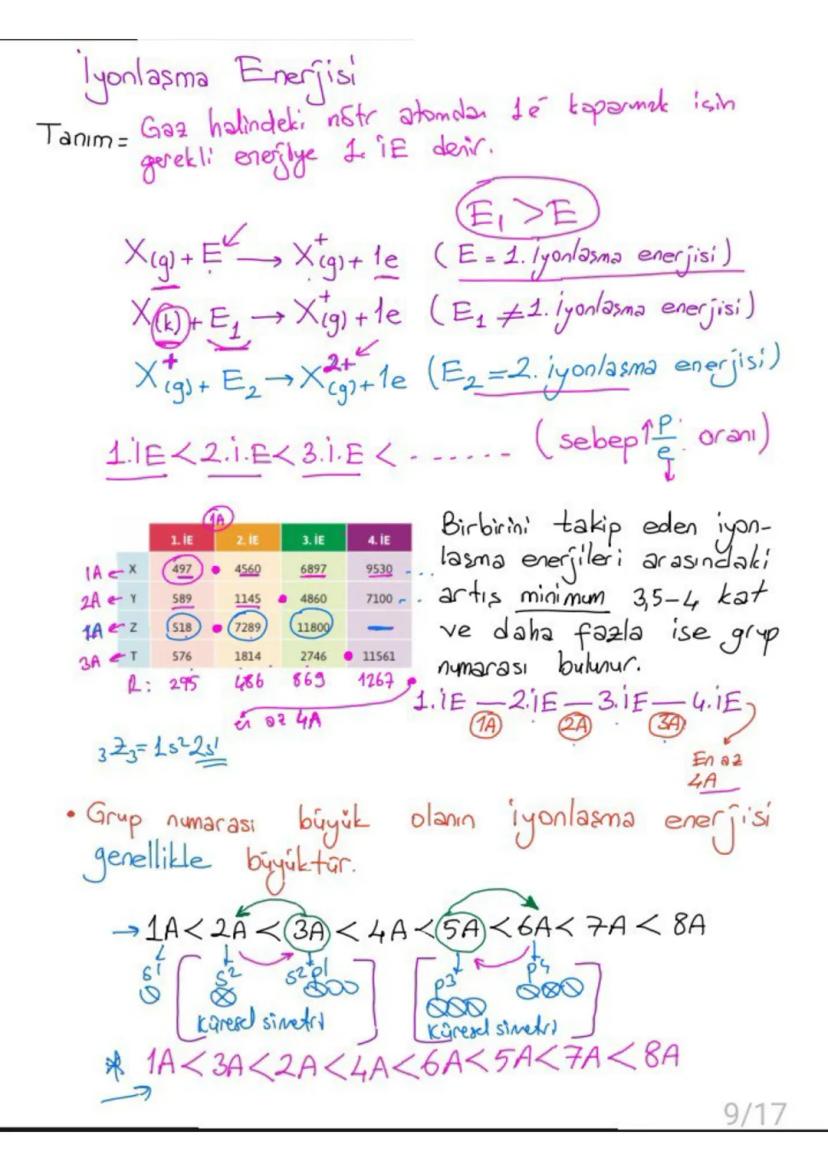 İyonlaşma Enerjisi
Tanım= Gaz halindeki nötr atomdan 1e⁻ koparmak için
gerekli enerjiye 1. İE denir.
E₁ > E
X(g) + E → X⁺(g) + 1e (E = 1. iyonlaşma enerjisi)
X(k) + E₁ → X⁺(g) + 1e (E₁ ≠ 1. iyonlaşma enerjisi)
X⁺(g) + E₂ → X²⁺(g) + 1e (E₂ = 2. iyonlaşma enerjisi)
1.İE < 2.İ.E < 3.İ.E < ...... (sebep ↑ p/e ↓ oranı)
1A
1. İE 2. İE 3. İE 4. İE
1A ← X 497 • 4560 6897 9530 ...
2A ← Y 589 1145 • 4860 7100 ...
1A ← Z 518 • 7289 11800 —
3A ← T 576 1814 2746 • 11561
R: 295 486 869 1267 •
en az 4A
₃Z₃= 1s² 2s¹
Birbirini takip eden iyon-
laşma enerjileri arasındaki
artış minimum 3,5-4 kat
ve daha fazla ise grup
numarası bulunur.
1.İE — 2.İE — 3.İE — 4.İE
1A 2A 3A
En az
4A
• Grup numarası büyük olanın iyonlaşma enerjisi
genellikle büyüktür.
→ 1A < 2A < 3A < 4A < 5A < 6A < 7A < 8A
s¹ s² s²p¹ p³ p⁴
küresel simetri küresel simetri
* 1A < 3A < 2A < 4A < 6A < 5A < 7A < 8A
9/17